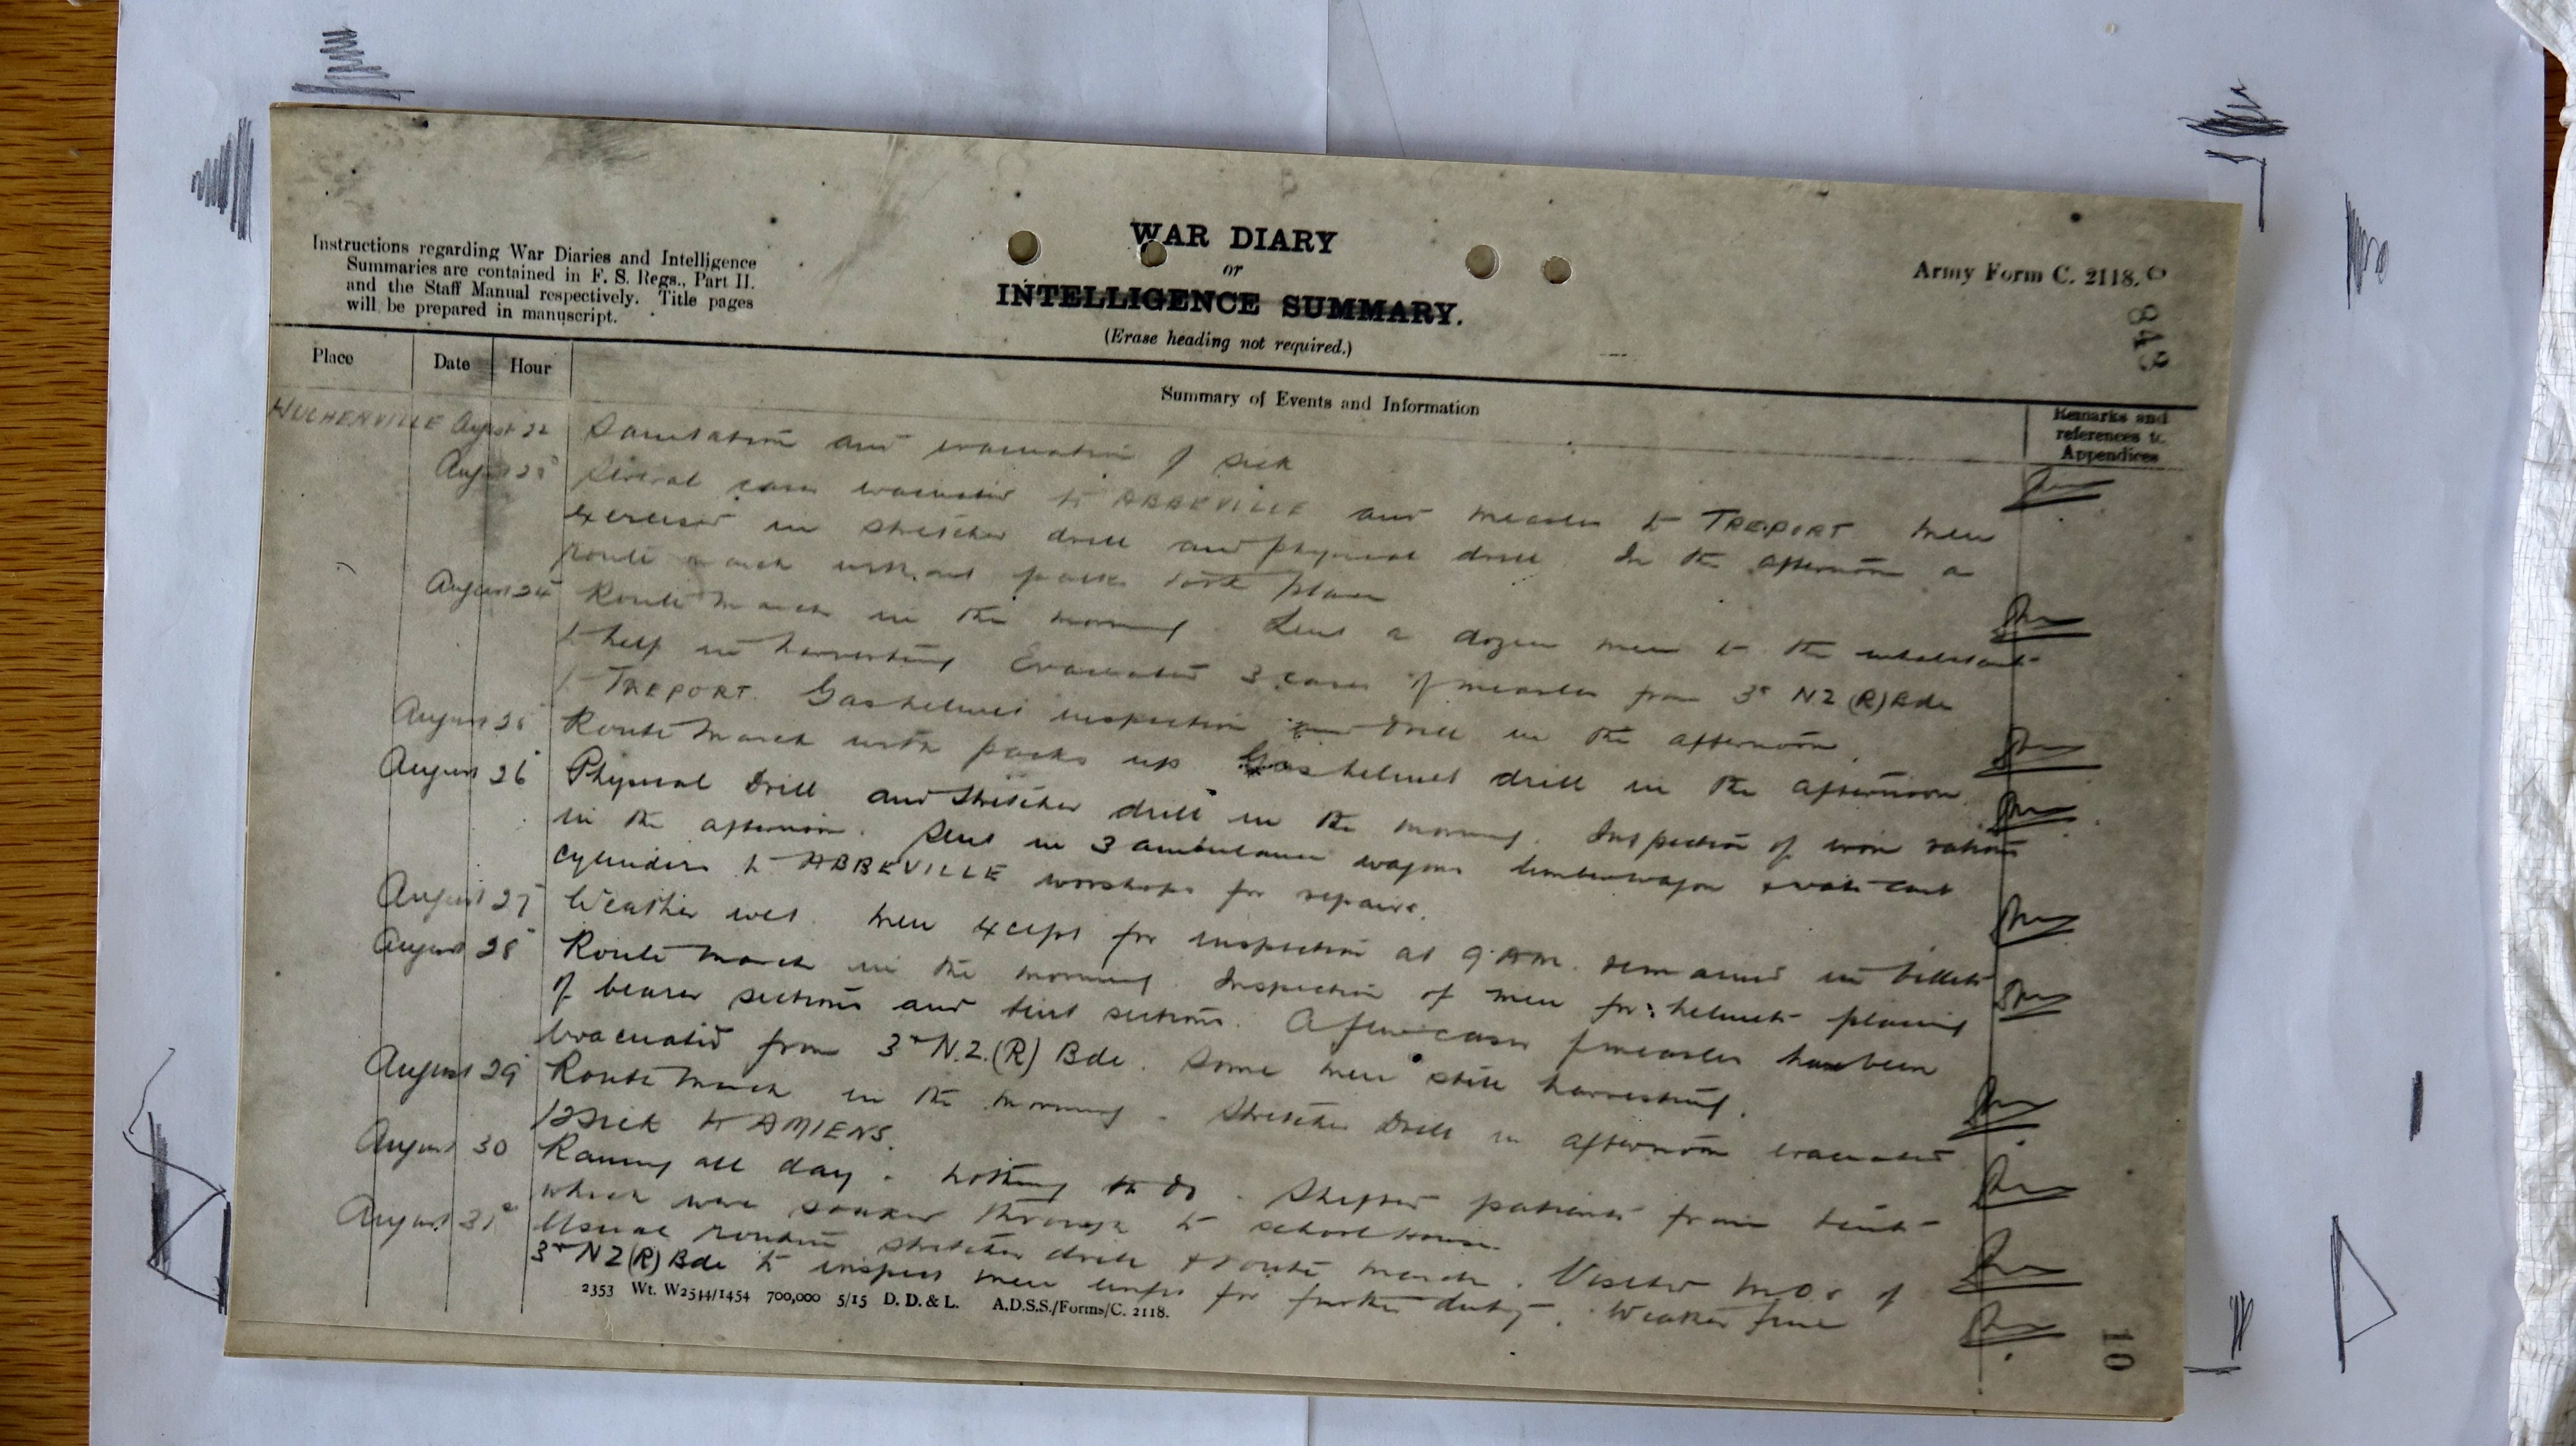 Instructions regarding War Diaries and Intelligence
Summaries are contained in F. S. Regs., Part II.
and the Staff Manual respectively. Title pages
will be prepared in manuscript.
WAR DIARY
or
INTELLIGENCE SUMMARY.
(Erase heading not required.)
Army Form C. 2118.
843
Place Date Hour Summary of Events and Information Remarks and references to Appendices
HUCHENVILLE August 22 Sanitation and evacuation of sick
August 23 Several cases evacuated to ABBEVILLE and measles to TREPORT Men
exercised in stretcher drill and physical drill In the afternoon a
route march without packs took place
August 24 Route March in the morning. Lent a dozen men to the inhabitants
to help in harvesting Evacuated 3 cases of measles from 3rd NZ (R) Bde
to TREPORT. Gas helmet inspection and drill in the afternoon.
August 25 Route March with packs up Gas helmet drill in the afternoon.
August 26 Physical Drill and Stretcher drill in the morning. Inspection of iron rations
in the afternoon. Sent in 3 ambulance wagons limberwagon & water cart
cylinders to ABBEVILLE worshops for repairs.
August 27 Weather wet. Men except for inspection at 9 AM. remained in billets
August 28 Route March in the morning. Inspection of men for helmets placing
of bearer sections and tent sections. A few cases of measles have been
evacuated from 3rd N.Z. (R) Bde. Some men still harvesting.
August 29 Route March in the morning. Stretcher Drill in afternoon evacuated
12 sick to AMIENS.
August 30 Raining all day. Nothing to do. Shifted patients from tents
which were soaked through to school house.
August 31st Usual routine stretcher drill & route march. Visited M.O.s of
3rd NZ (R) Bde to inspect men unfit for further duty. Weather fine
2353 Wt. W2544/1454 700,000 5/15 D. D. & L. A.D.S.S./Forms/C. 2118.
10